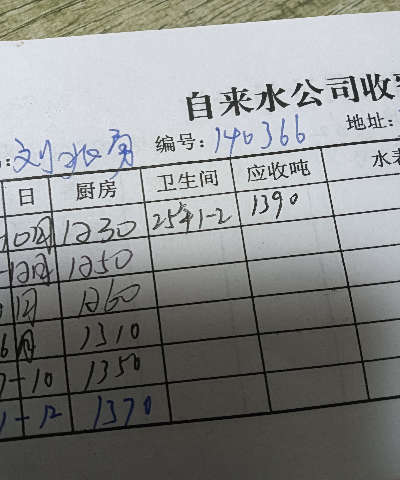 自来水公司收
编号: 140366 地址:
日 厨房 卫生间 应收吨 水表
10月 1230 1390
12月 1250
1月 1260
6月 1310
7-10 1350
1-12 1370